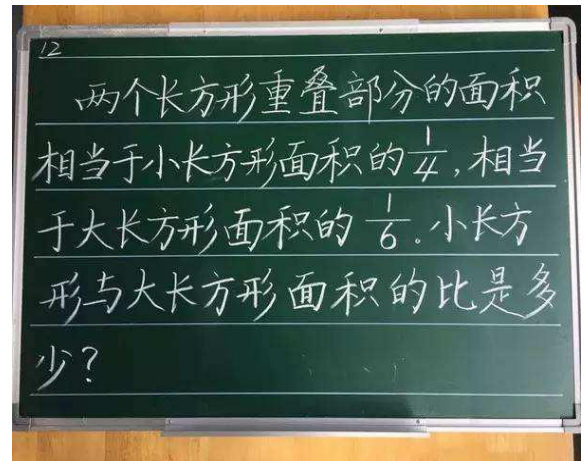 12
两个长方形重叠部分的面积
相当于小长方形面积的1/4,相当
于大长方形面积的1/6。小长方
形与大长方形面积的比是多
少?